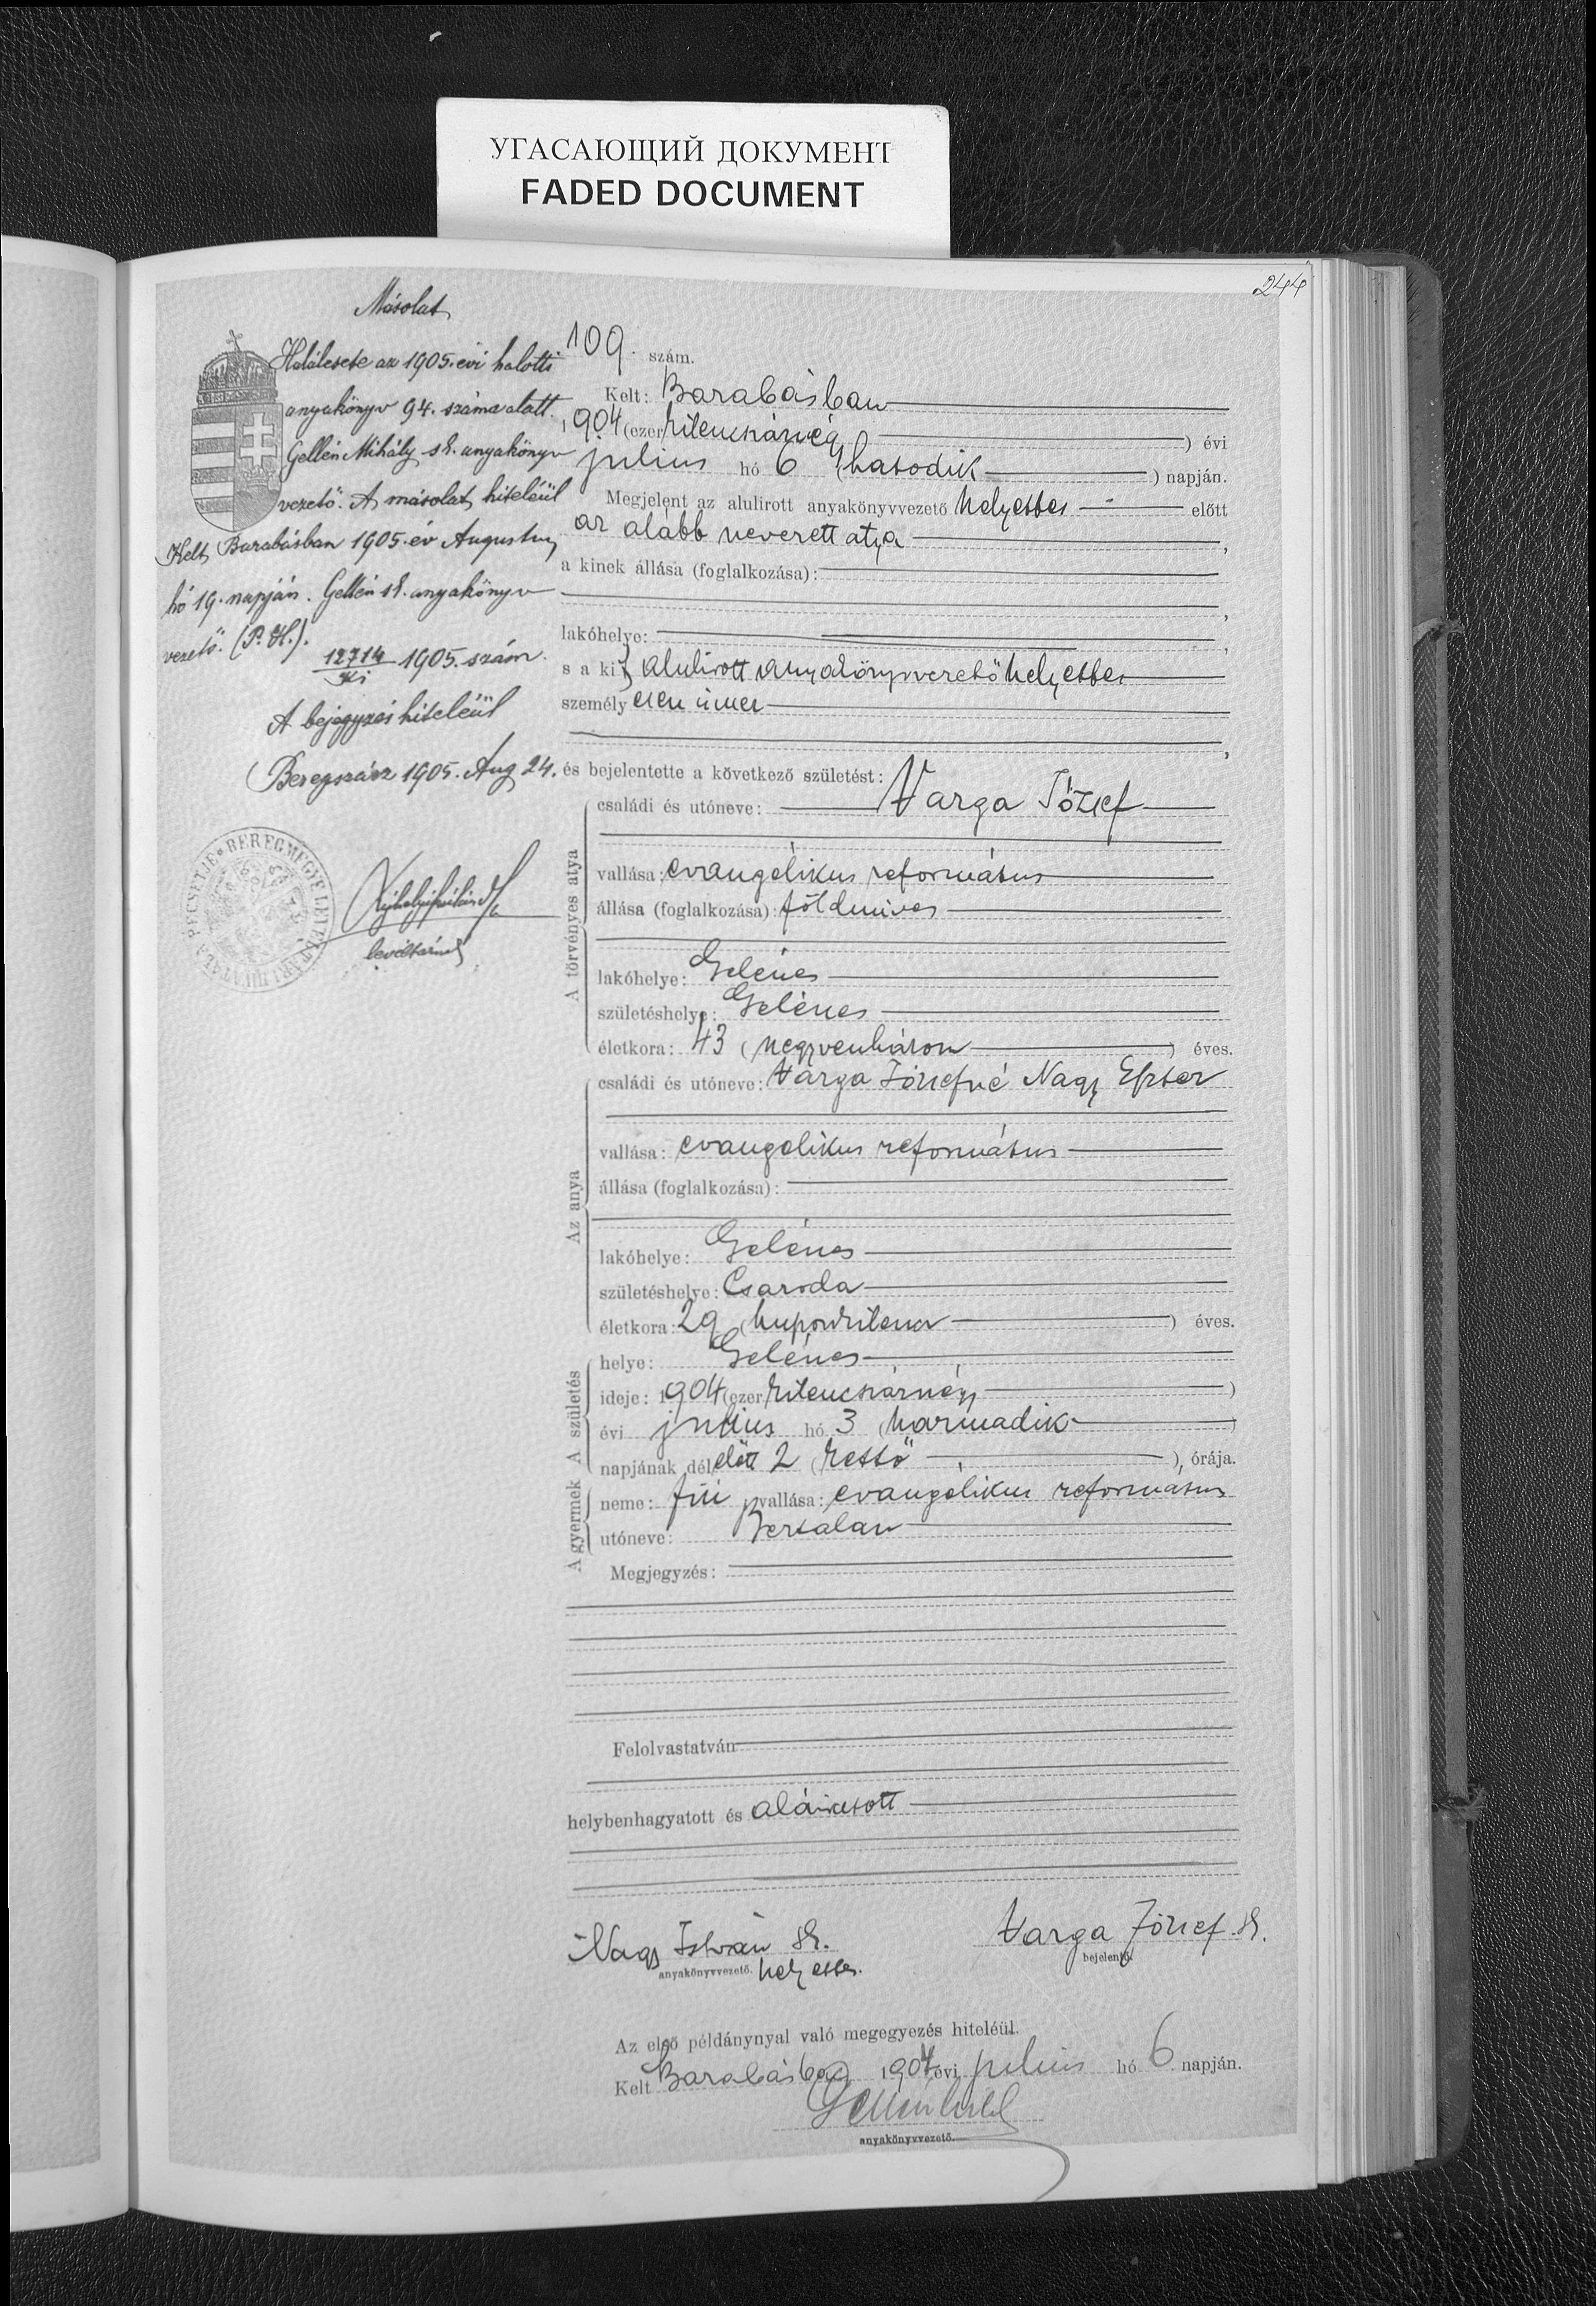 УГАСАЮЩИЙ ДОКУМЕНТ
FADED DOCUMENT
244
Másolat
Halálesete az 1905. évi halotti
anyakönyv 94. száma alatt.
Gellén Mihály sk. anyakönyv
vezető. A másolat hiteléül
Kelt Barabásban 1905. év Augusztus
hó 19. napján. Gellén sk. anyakönyv
vezető. (P. H.).
12714/ki 1905. szám.
A bejegyzés hiteléül
Beregszász 1905. Aug 24.
levéltárnok
109. szám.
Kelt: Barabásban
1904 (ezer kilencszáznégy ) évi
julius hó 6 (hatodik ) napján.
Megjelent az alulirott anyakönyvvezető helyettes előtt
az alább nevezett atya ,
a kinek állása (foglalkozása):
,
lakóhelye: ,
s a kit alulirott anyakönyvvezető helyettes
személyesen ismer
,
és bejelentette a következő születést:
A törvényes atya
családi és utóneve: Varga József
vallása: evangélikus református
állása (foglalkozása): földmives
lakóhelye: Gelénes
születéshelye: Gelénes
életkora: 43 (negyvenhárom ) éves.
Az anya
családi és utóneve: Varga Józsefné Nagy Eszter
vallása: evangelikus református
állása (foglalkozása):
lakóhelye: Gelénes
születéshelye: Csaroda
életkora: 29 (huszonkilenc ) éves.
A születés
helye: Gelénes
ideje: 1904 (ezer kilencszáznégy )
évi julius hó 3 (harmadik )
napjának délelőtt 2 (kettő ), órája.
A gyermek
neme: fiú vallása: evangélikus református
utóneve: Bertalan
Megjegyzés:
Felolvastatván
helybenhagyatott és aláiratott
Nagy István sk. Varga József sk.
anyakönyvvezető. helyettes. bejelentő.
Az első példánynyal való megegyezés hiteléül.
Kelt Barabásban 1904 évi julius hó 6 napján.
anyakönyvvezető.